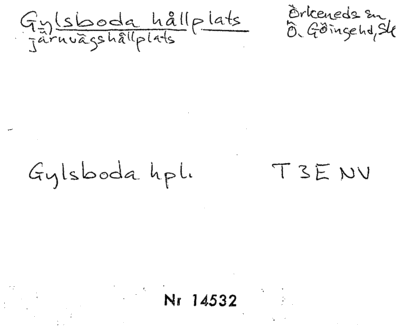 Gylsboda hållplats
järnvägshållplats
Örkeneds sn,
Ö. Göingehd, Sk
Gylsboda hpl.
T 3 E NV
Nr 14532